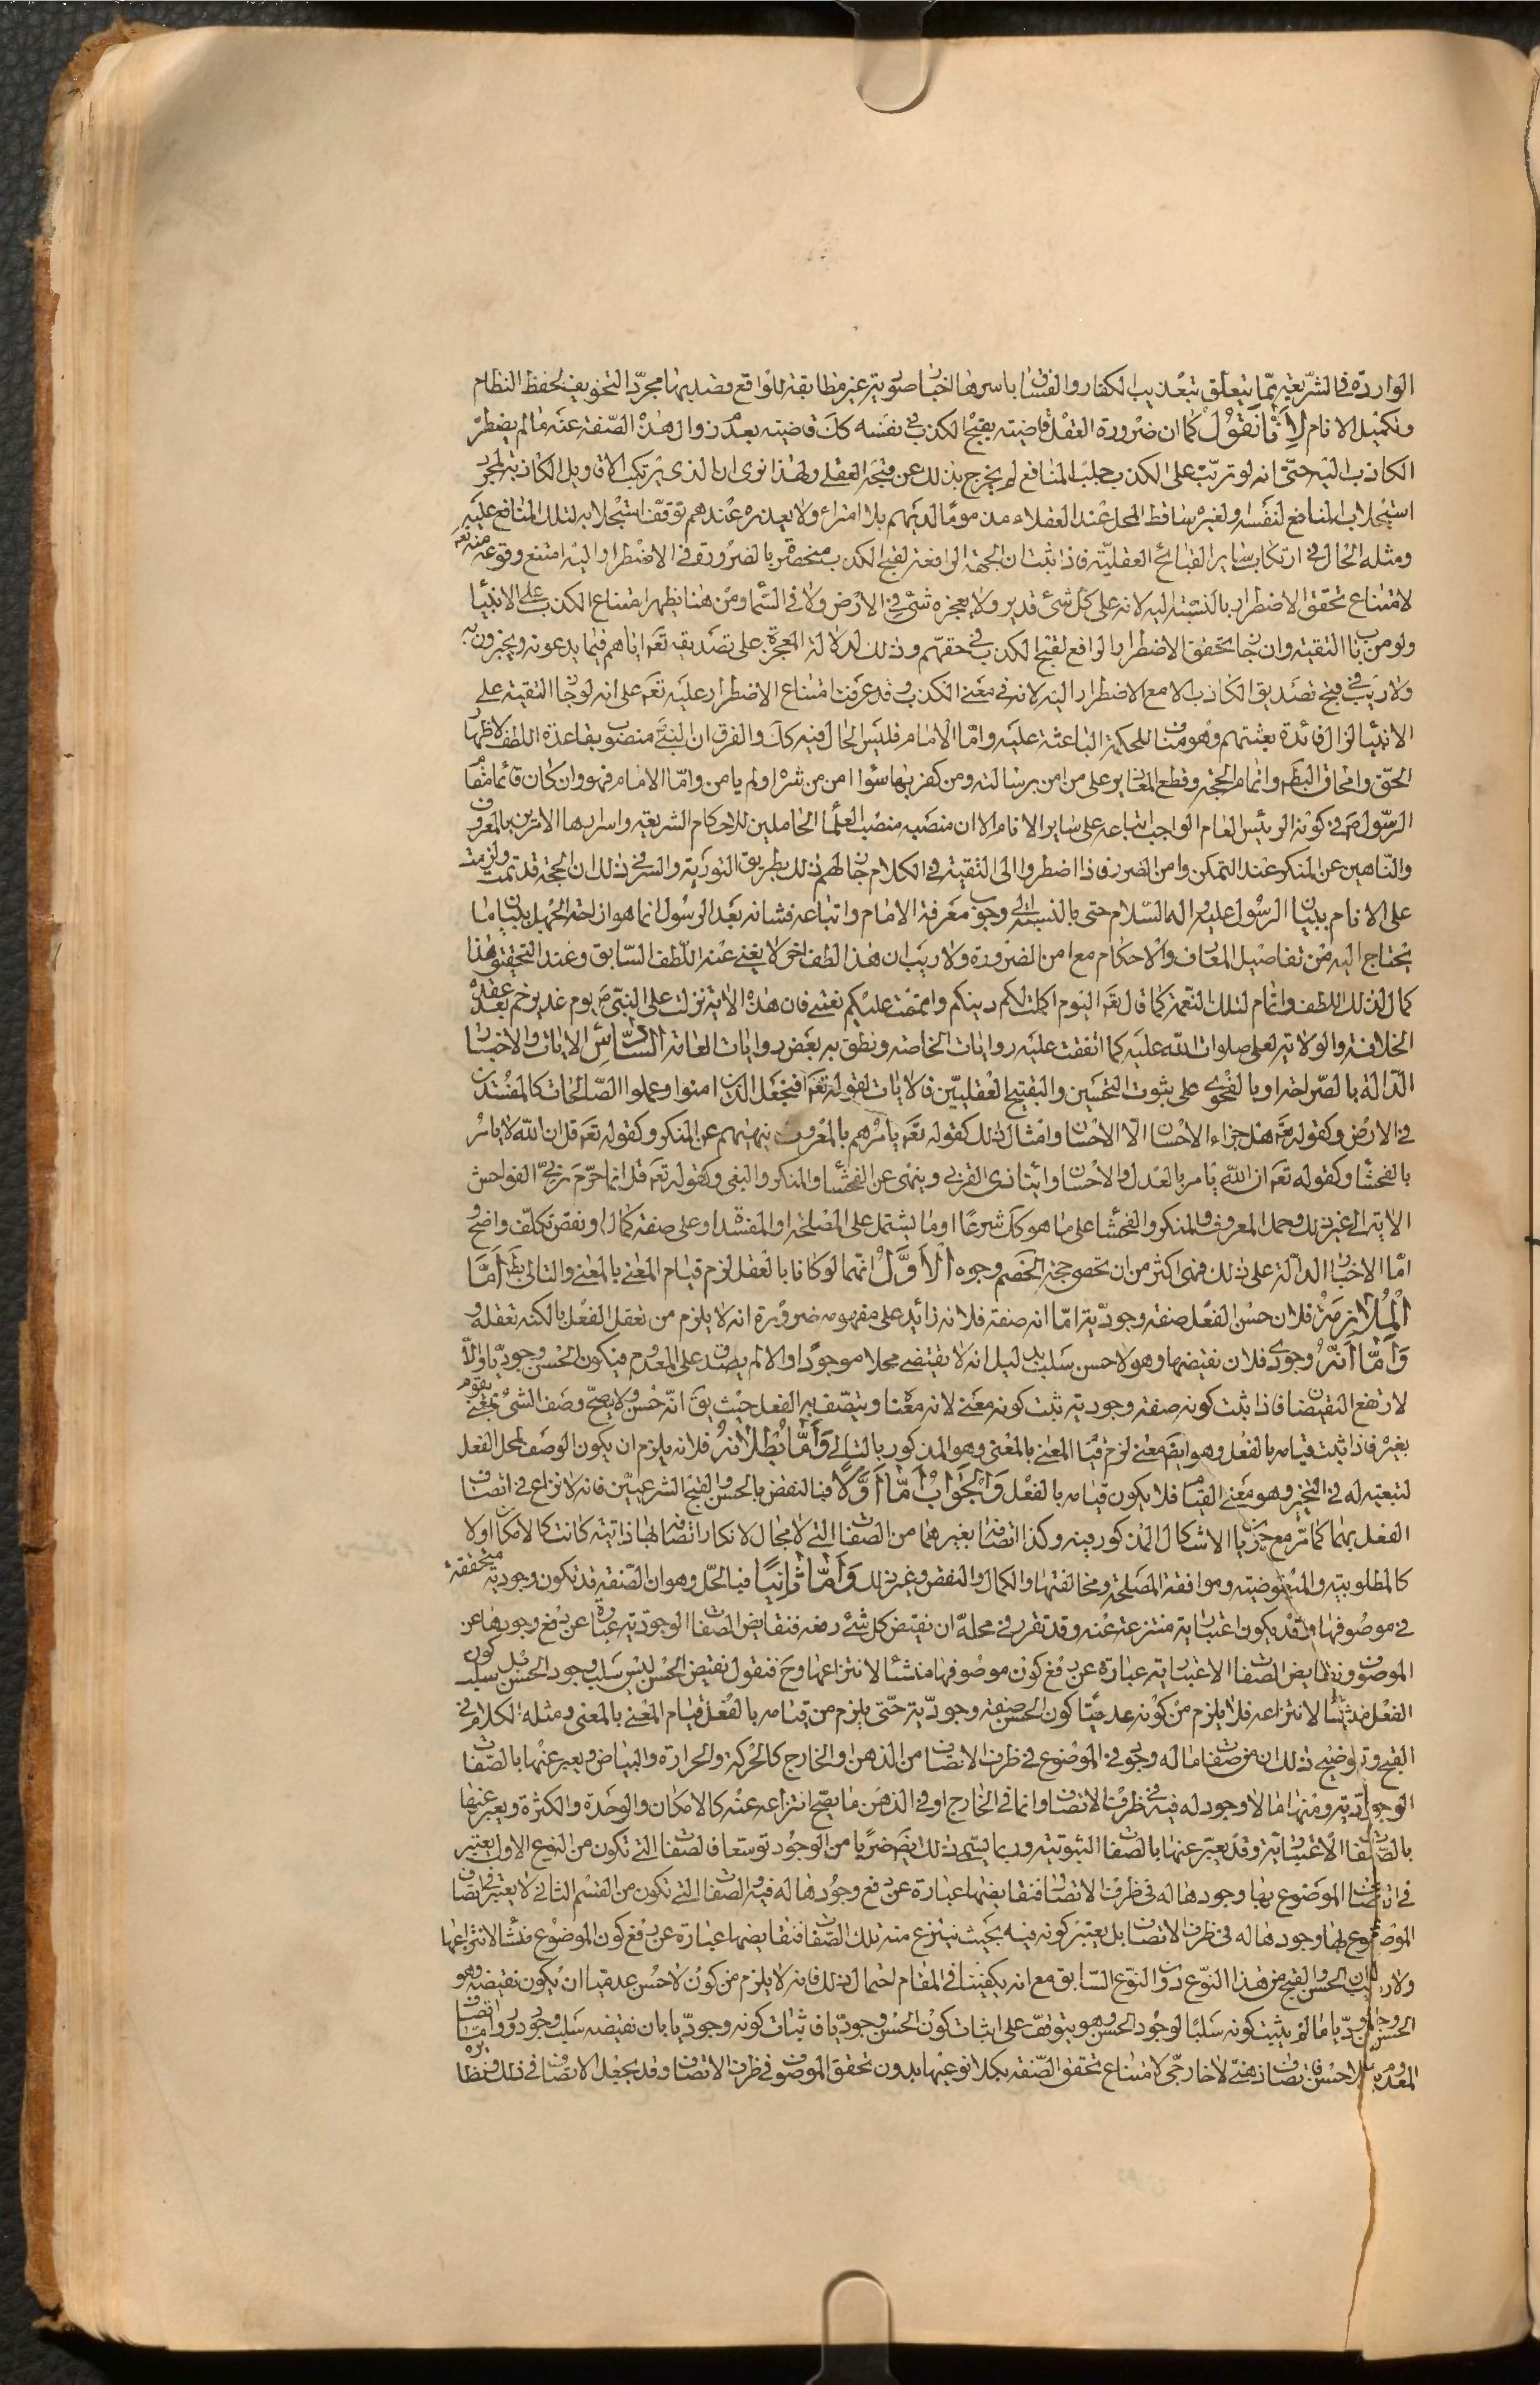 الواردة فى الشريعة ممّا يتعلق بتعذيب الكفار والفساق باسرها اخبار صورية غير مطابقة للواقع قصد بها مجرّد التخويف لحفظ النظام
وتكميل الانام لِأَنّا نَقُولُ كما ان ضرورة العقل قاضية بقبح الكذب فى نفسه كك قاضية بعدم زوال هذه الصّفة عنه ما لم يضطرّ
الكاذب اليه حتّى انه لو ترتّب على الكذب جلب المنافع لم يخرج بذلك عن قبحه العقلى ولهذا نرى ان الذى يرتكب الاقاويل الكاذبة لمجرد
استجلاب المنافع لنفسه ولغيره ساقط المحل عند العقلاء مذموما لديهم بلا امتراء ولا يعذره عندهم توقف استجلابه لتلك المنافع عليه
ومثله الحال فى ارتكاب ساير القبايح العقليّة فاذا ثبت ان الجهة الرافعة لقبح الكذب منحصرة بالضرورة فى الاضطرار اليه امتنع وقوعه منه تعه
لامتناع تحقق الاضطرار بالنسبة اليه لانه على كل شئ قدير ولا يعجزه شئ فى الارض ولا فى السّماء ومن هنا يظهر امتناع الكذب على الانبياء
ولو من باب التقية وان جاز تحقق الاضطرار الرافع لقبح الكذب فى حقهم وذلك لدلالة المعجزة على تصديقه تعه اياهم فيما يدعونه ويخبرون به
ولا ريب فى قبح تصديق الكاذب الا مع الاضطرار اليه لانه فى معنى الكذب وقد عرفت امتناع الاضطرار عليه تعه على انه لو جاز التقية على
الانبياء لزال فائدة بعثتهم وهو مناف للحكمة الباعثة عليه وامّا الامام فليس الحال فيه كك والفرق ان النبى منصوب بقاعدة اللطف لاظهار
الحقّ وامحاق البطه واتمام الحجة وقطع المعاذير على من امن برسالته ومن كفر بها سواء امن من شره او لم يامن وامّا الامام فهو وان كان قائما مقام
الرّسول ص فى كونه الرئيس العام الواجب اتباعه على ساير الانام الا ان منصبه منصب العلماء الحاملين للاحكام الشريعة واسرارها الامرين بالمعروف
والنّاهين عن المنكر عند التمكن وامن الضرر فاذا اضطروا الى التقية فى الكلام جاز لهم ذلك بطريق التورية والسر فى ذلك ان الحجة قد تمت ولزمت
على الانام ببيان الرسول عليه واله السّلام حتى بالنسبة الى وجوب معرفة الامام واتباعه فشانه بعد الرسول انما هو ازاحة الجهل ببيان ما
يحتاج اليه من تفاصيل المعارف والاحكام مع امن الضرورة ولا ريب ان هذا لطف اخر لا يغنى عنه اللّطف السّابق وعند التحقيق هذا
كمال لذلك اللطف واتمام لتلك النّعمة كما قال تعه اليوم اكملت لكم دينكم واتممت عليكم نعمتى فان هذه الاية نزلت على النبىّ ص يوم غدير خم بعد عقده
الخلافة والولاية لعلى صلوات الله عليه كما اتفقت عليه روايات الخاصه ونطق به بعض روايات العامة السّادس الايات والاخبار
الدّالة بالصّراحة او بالفحوى على ثبوت التحسين والتقبيح العقليين فالايات لقوله تعه افنجعل الذين امنوا وعملوا الصّالحات كالمفسدين
فى الارض وكقوله تعه هل جزاء الاحسان الّا الاحسان وامثال ذلك كقوله تعه يامرهم بالمعروف وينهيهم عن المنكر وكقوله تعه قل ان الله لا يامر
بالفحشاء وكقوله تعه ان الله يامر بالعدل والاحسان وايتاء ذى القربى وينهى عن الفحشاء والمنكر والبغى وكقوله تعه قل انما حرّم ربىّ الفواحش
الاية الى غير ذلك وحمل المعروف والمنكر والفحشاء على ما هو كك شرعًا او ما يشتمل على المصلحة او المفسدة او على صفة كمال او نقص تكلّف واضح
امّا الاخبار الدالّة على ذلك فهى اكثر من ان تحصى حجة الخصم وجوه الأوَّل انهما لو كانا بالعقل لزم قيام المعنى بالمعنى والتالى بطه أمَّا
المُلازمَةُ فلان حسن الفعل صفة وجوديّة امّا انه صفة فلانه زائد على مفهومه ضرورة انه لا يلزم من تعقل الفعل بالكنه تعقله
وَأمَّا أنَّهُ وجودى فلان نقيضها وهو لا حسن سلب بدليل انه لا يقتضى محلا موجودًا والا لم يصدق على المعدوم فيكون الحسن وجوديّا والّا
لارتفع النقيضان فاذا ثبت كونه صفة وجودية ثبت كونه معنى لانه معنا ويتصف به الفعل حيث يق انّه حسن ولا يصحّ وصف الشئ بمعنى يقوم
بغيره فاذا ثبت قيامه بالفعل وهو ايضه معنى لزم قيام المعنى بالمعنى وهو المذكور بالتالى وَأمَّا بُطْلانهُ فلانه يلزم ان يكون الوصف لمحل الفعل
لتبعيته له فى التحيز وهو معنى القيام فلا يكون قيامه بالفعل وَالجَوابُ أمَّا أوَّلًا فبالنقض بالحسن والقبح الشرعيّين فانه لا نزاع فى اتصاف
الفعل بهما كما مرّ مع جريان الاشكال المذكور فيه وكذا اتصافه بغيرهما من الصفات التى لا مجال لانكار اتصافه لها ذاتية كانت كالامكان او لا
كالمطلوبية والمبغوضية وموافقة المصلحة ومخالفتها والكمال والنقص وغير ذلك وَأمَّا ثانِيًا فبالحّل وهو ان الصّفة قد تكون وجودية متحققة
فى موصوفها وقد يكون اعتبارية منتزعة عنه وقد تقرر فى محلّه ان نقيض كل شئ رفعه فنقايض الصفات الوجوديّة عبارة عن رفع وجودها عن
الموصوف ونقايض الصفات الاعتبارية عبارة عن رفع كون موصوفها منشئا لانتزاعها وح فنقول نقيض الحسن ليس سلب وجود الحسن بل سلب كون
الفعل منشئا لانتزاعه فلا يلزم من كونه عدميّا كون الحسن صفة وجوديّة حتّى يلزم من قيامه بالفعل قيام المعنى بالمعنى ومثله الكلام فى
القبح وتوضيح ذلك ان من الصفات ما له وجود فى الموضوع فى ظرف الاتصاف من الذهن او الخارج كالحركة والحرارة والبياض ويعبر عنها بالصّفات
الوجوديّة ومنها ما لا وجود له فيه فى ظرف الاتصاف وانما فى الخارج او فى الذهن ما يصحّ انتزاعه عنه كالامكان والوحدة والكثرة ويعبر عنها
بالصّفات الاعتباريّة وقد يعبّر عنها بالصفات الثبوتية وربما يسمى ذلك ايضه ضربا من الوجود توسّعا فالصّفات التى تكون من النوع الاول يعتبر
فى اتصاف الموضوع بها وجودها له فى ظرف الاتصاف فنقايضها عبارة عن رفع وجودها له فيه والصفات التى تكون من القسم الثانى لا يعتبر فى اتصاف
الموضوع بها وجودها له فى ظرف الاتصاف بل يعتبر كونه فيه بحيث ينتزع منه تلك الصّفات فنقايضها عبارة عن رفع كون الموضوع منشأ لانتزاعها
ولا ريب ان الحسن والقبح من هذا النوع دون النوع السّابق مع انه يكفينا فى المقام احتمال ذلك فانه لا يلزم من كون لا حسن عدميّا ان يكون نقيضه وهو
الحسن وجوديّا ما لم يثبت كونه سلبًا لوجود الحسن وهو يتوقف على اثبات كون الحسن وجوديّا فاثبات كونه وجوديّا بان نقيضه سلب وجود دور وامّا اتصاف
المعدوم بلا حسن فاتصاف ذهنىّ لا خارجىّ لامتناع تحقق الصّفة بكلا نوعيها بدون تحقق الموصوف فى ظرف الاتصاف وقد يجعل الاتصاف فى ذلك ونظايره